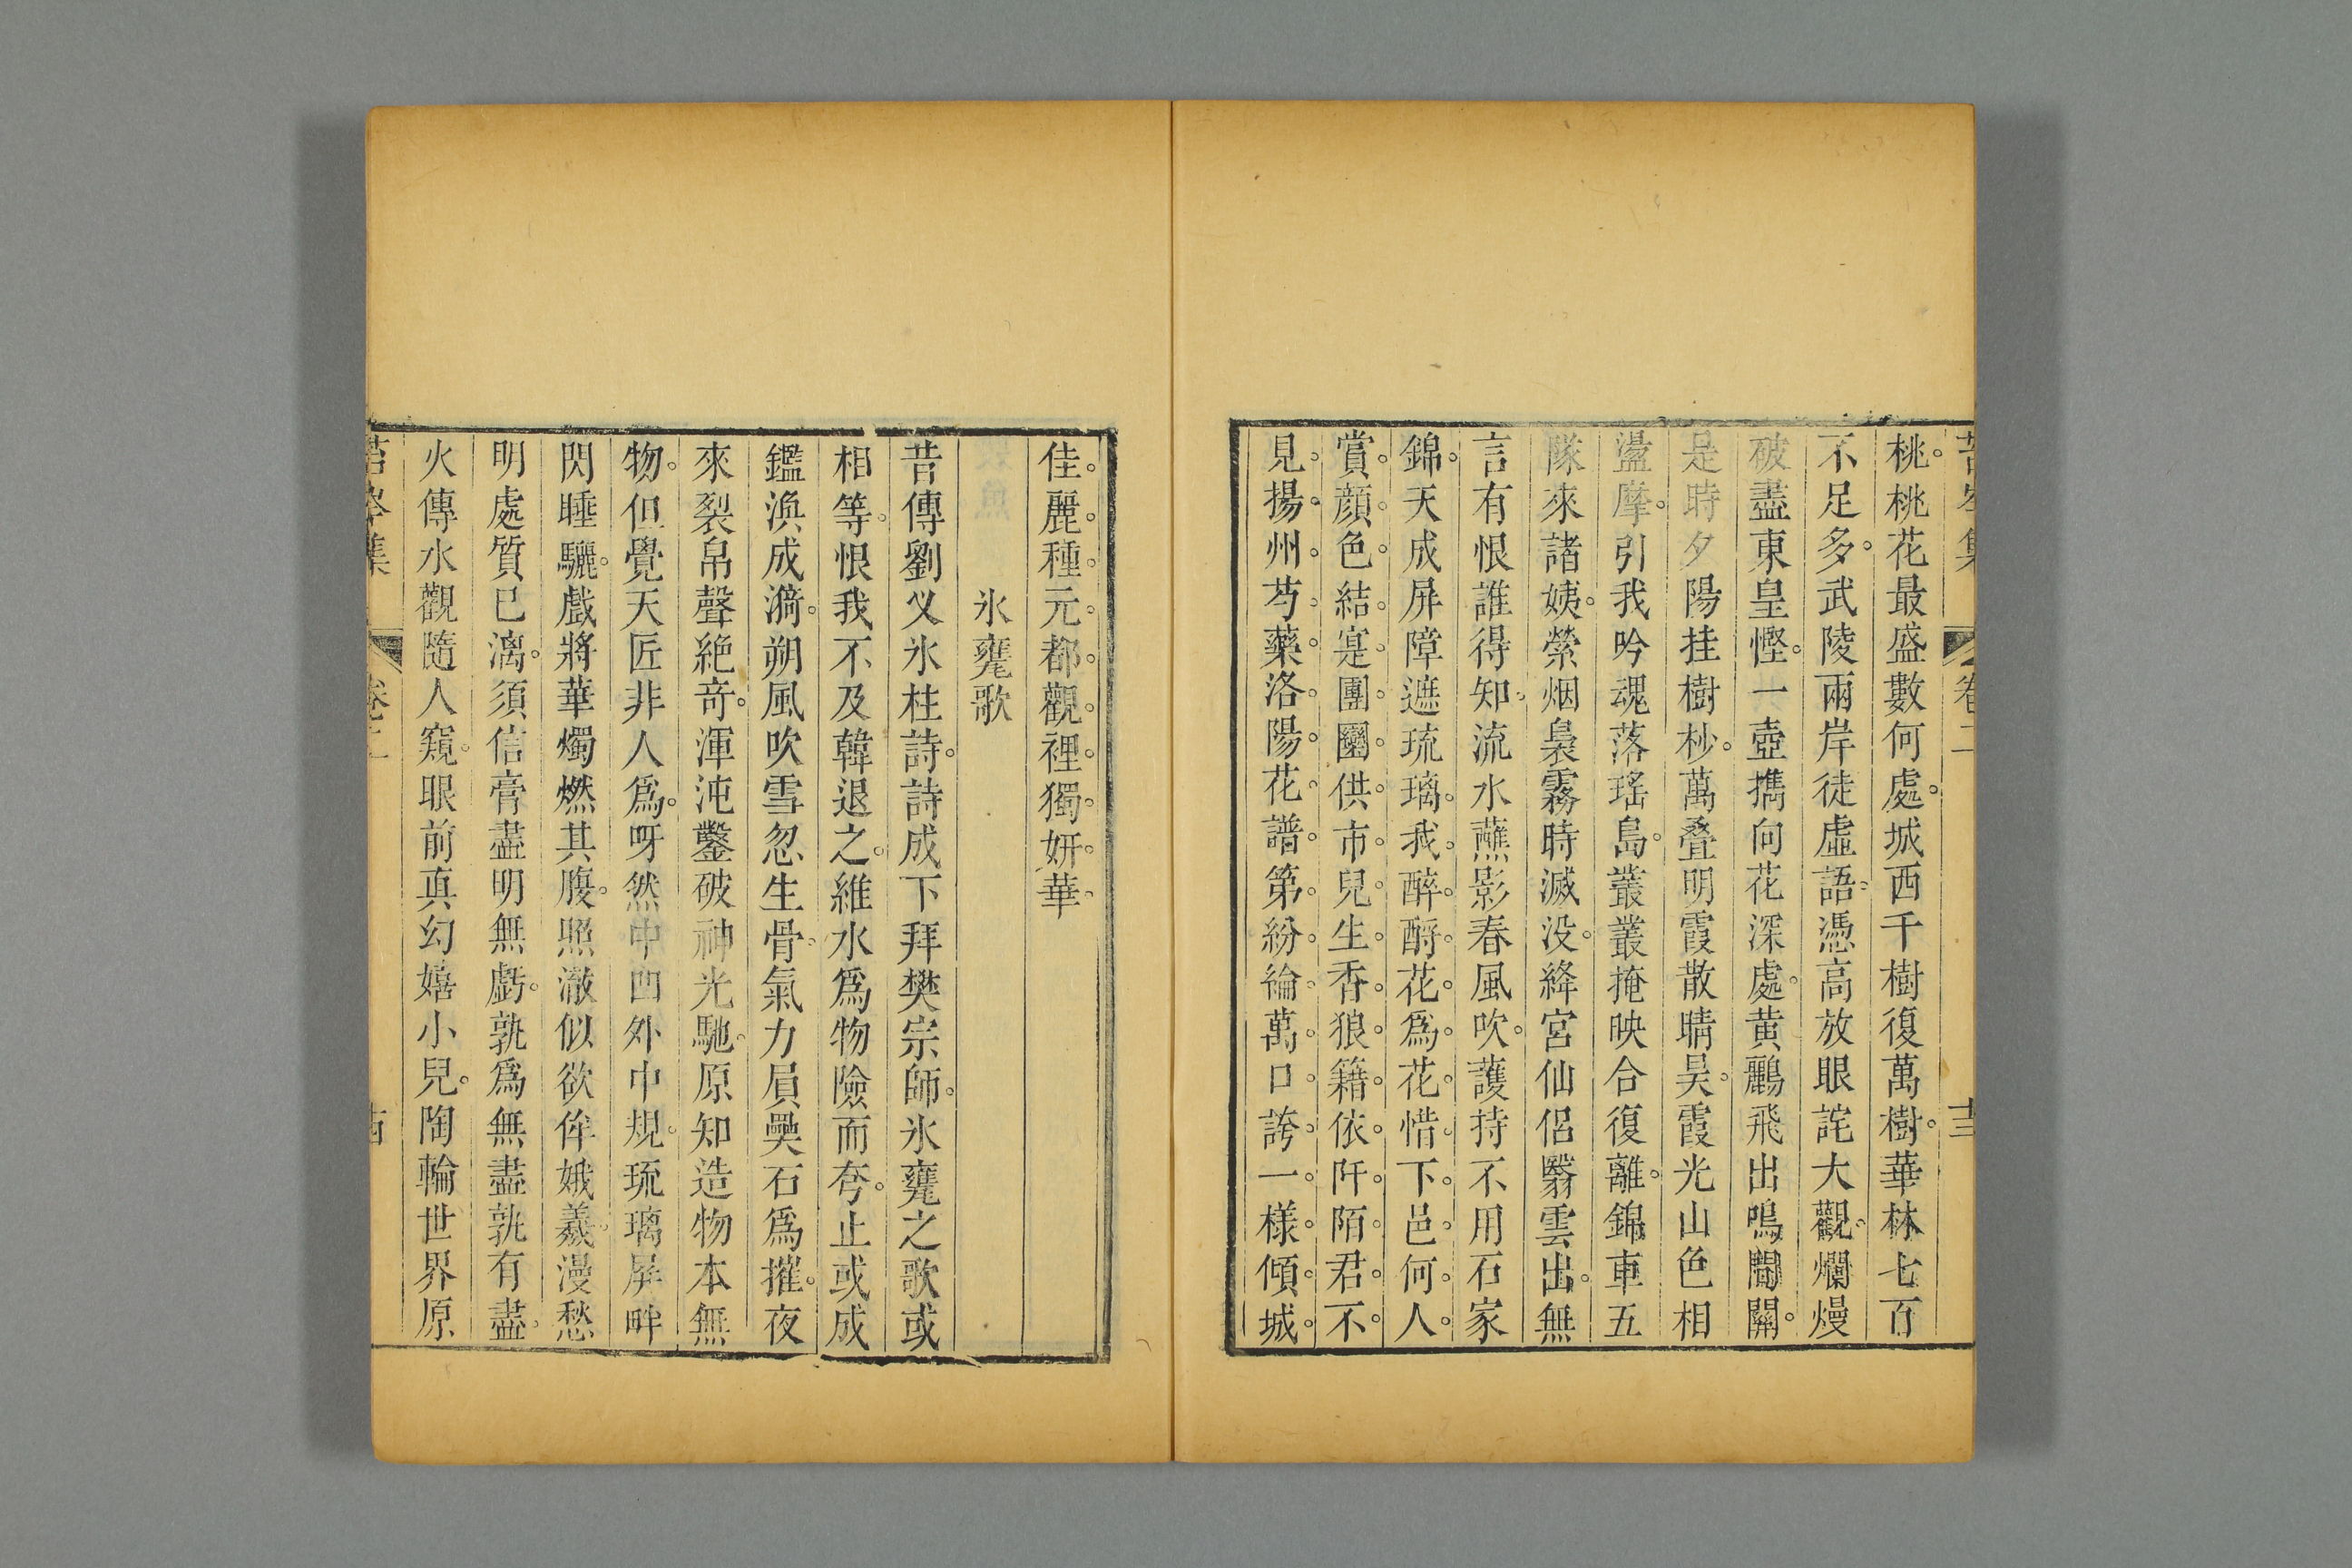 苔岑集 卷二 十三
桃桃花最盛數何處城西千樹復萬樹華林七百
不足多武陵兩岸徒虛語憑高放眼詫大觀爛熳
破盡東皇慳一壺擕向花深處黃鸝飛出鳴間關
是時夕陽挂樹杪萬叠明霞散晴昊霞光山色相
盪摩引我吟魂落瑤島叢叢掩映合復離錦車五
隊來諸姨縈烟裊霧時滅没絳宮仙侶翳雲出無
言有恨誰得知流水蘸影春風吹護持不用石家
錦天成屏障遮琉璃我醉酹花爲花惜下邑何人
賞顔色結寔團圞供市兒生香狼籍依阡陌君不
見揚州芍藥洛陽花譜第紛綸萬口誇一樣傾城
佳麗種元都觀裡獨妍華
氷甕歌
昔傳劉义氷柱詩詩成下拜樊宗師氷甕之歌或
相等恨我不及韓退之維水爲物險而夸止或成
鑑渙成漪朔風吹雪忽生骨氣力屓奰石爲摧夜
來裂帛聲絶奇渾沌鑿破神光馳原知造物本無
物但覺天匠非人爲呀然中凹外中規琉璃屏畔
閃睡驪戲將華燭燃其腹照澈似欲侔娥羲漫愁
明處質已漓須信膏盡明無虧孰爲無盡孰有盡
火傳水觀隨人窺眼前真幻嬉小兒陶輪世界原
苔岑集 卷二 十四